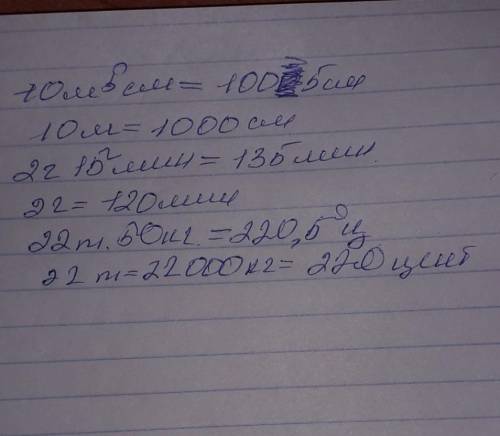 10м5см = 1005см
10м = 1000см
2г 15мин = 135мин.
2г = 120мин
22т. 50кг. = 220,5 ц
22т = 22000кг = 220 цент